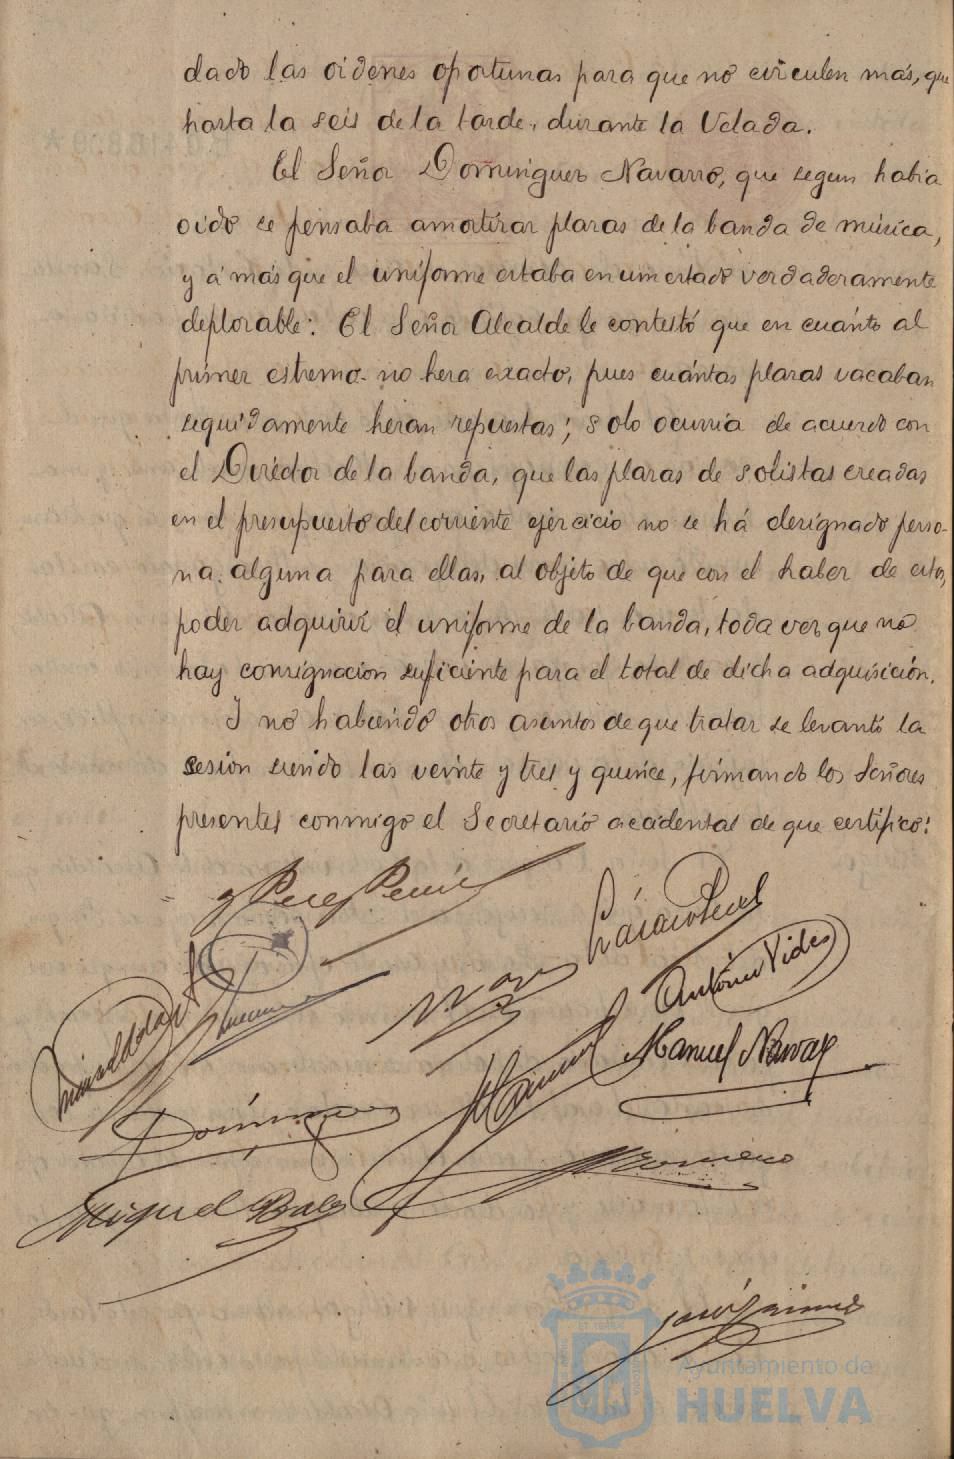 dado las ordenes oportunas para que no circulen más, que
hasta la seis de la tarde, durante la Velada.
El Señor Dominguez Navarro, que segun habia
oido se pensaba amortizar plazas de la banda de música,
y á más que el uniforme estaba en un estado verdaderamente
deplorable: El Señor Alcalde le contestó que en cuánto al
primer estremo no hera exacto, pues cuántas plazas vacaban
seguidamente heran repuestas; solo ocurria de acuerdo con
el Diréctor de la banda, que las plazas de solistas creadas
en el presupuesto del corriente ejercicio no se há designado perso-
na alguna para ellas, al objeto de que con el haber de estos,
poder adquirir el uniforme de la banda, toda vez que no
hay consignacion suficiente para el total de dicha adquisición.
I no habiendo otros asuntos de que tratar se levantó la
sesion siendo las veinte y tres y quince, firmando los Señores
presentes conmigo el Secretario accidental de que certifico:
Antonio Vides
Manuel Navas
Domínguez
Romero
Miguel
Ayuntamiento de
HUELVA